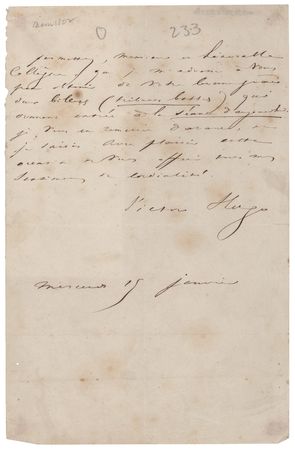 233
permettez, Monsieur et honorable
Collègue, que je m'adresse
pour obtenir de votre
deux billets (tribunes basses) qui
donnent entrée à la séance d'aujourd'hui
je vous en remercie d'avance, et
je saisis avec plaisir cette
occasion de vous offrir tous mes
sentiments de cordialité.
Victor Hugo
mercredi 15 janvier